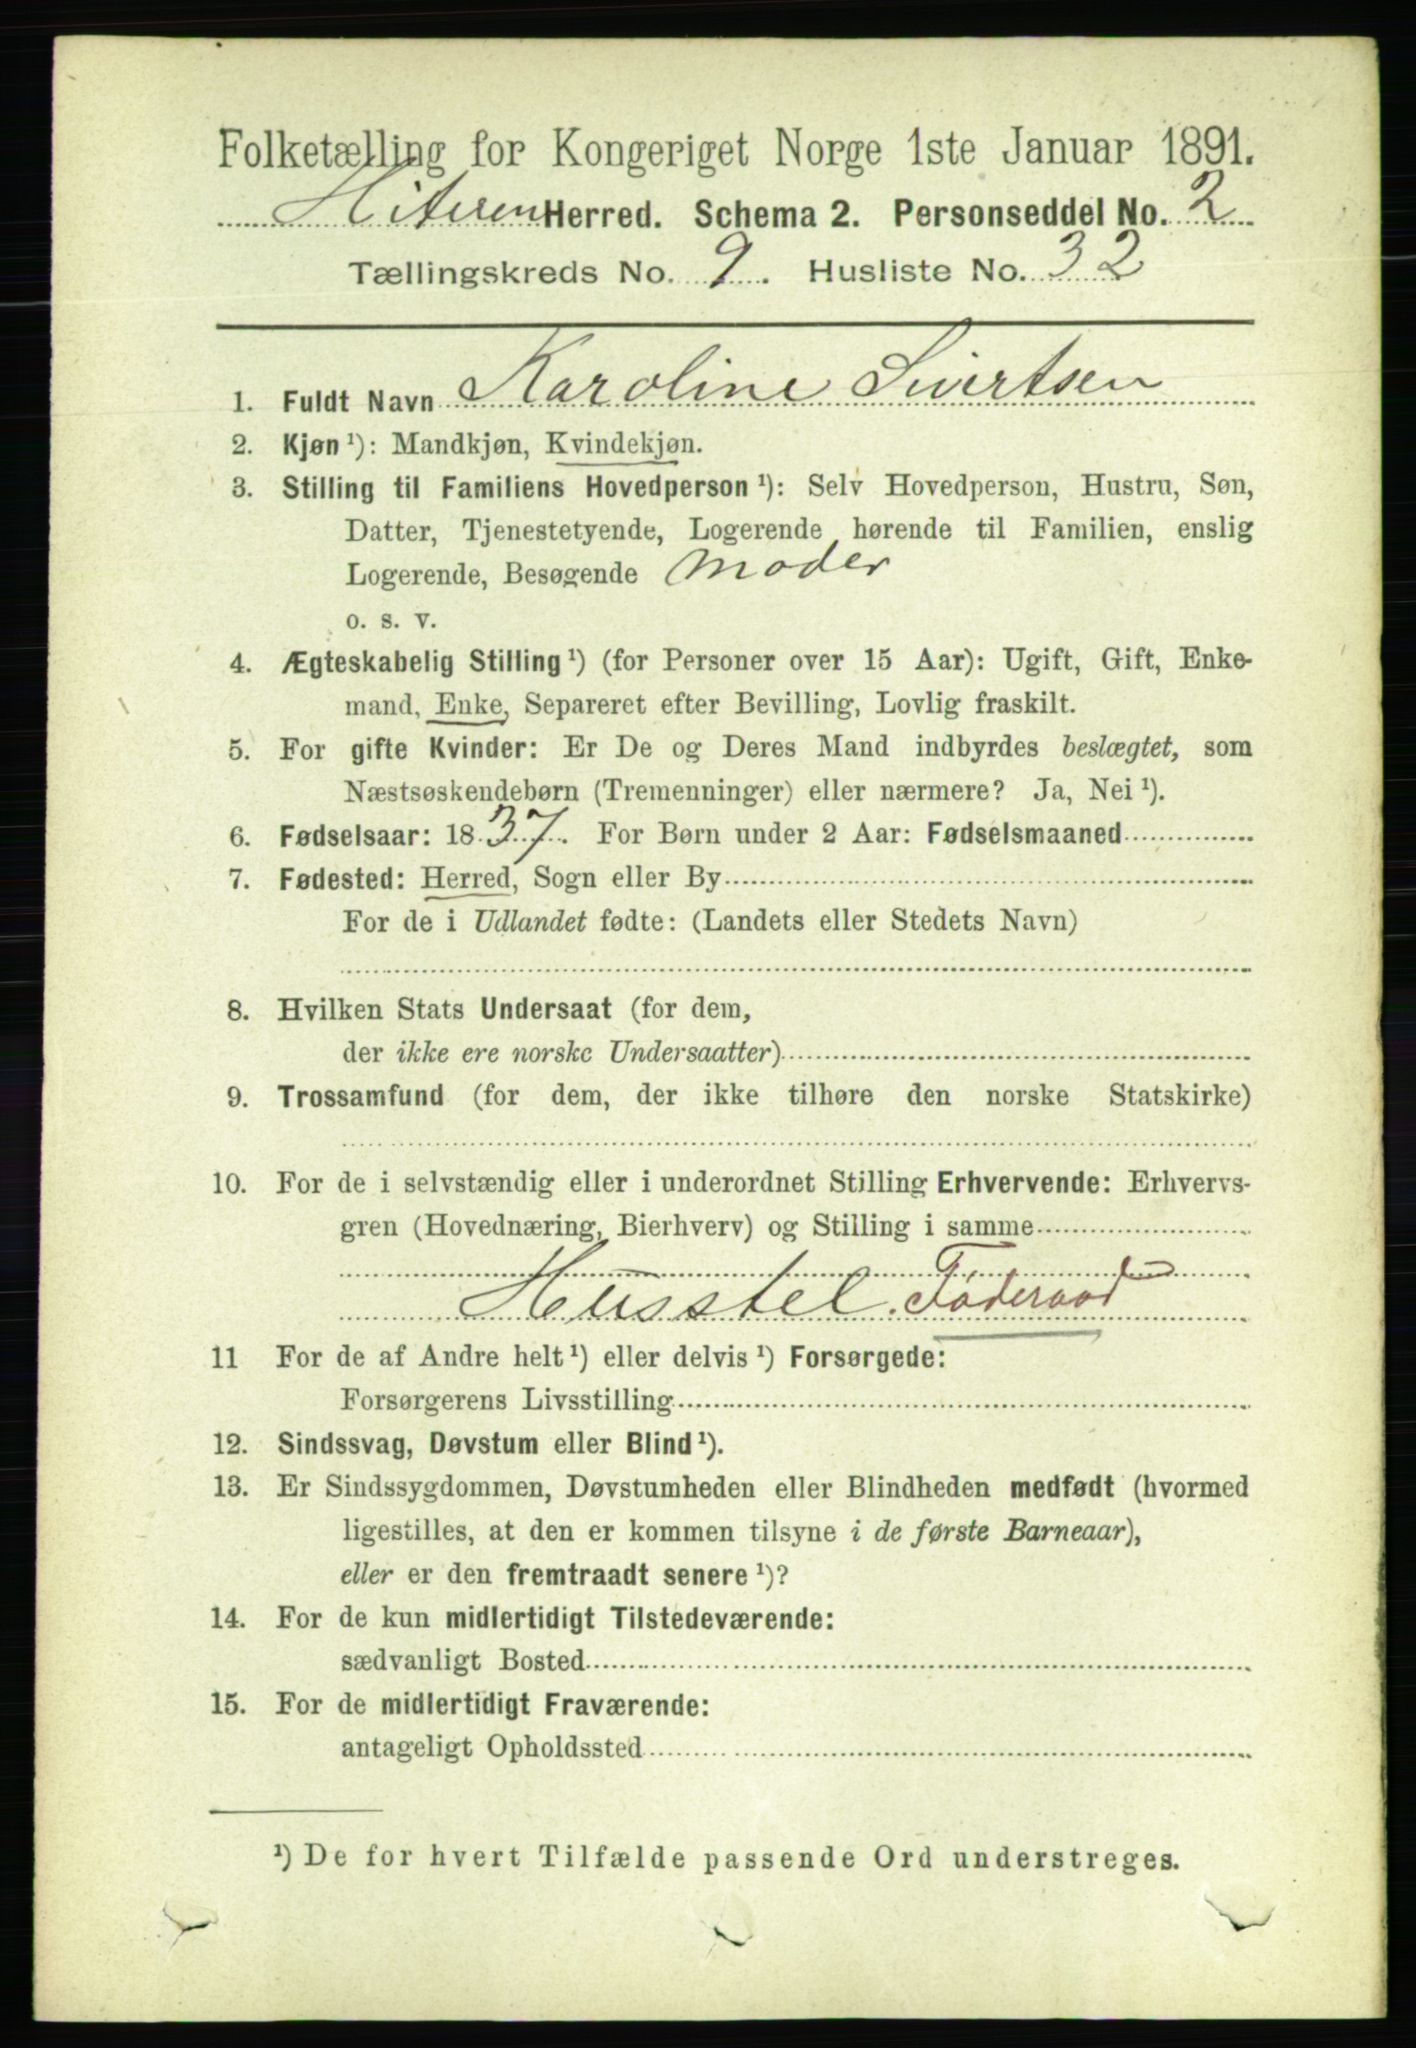 Folketælling for Kongeriget Norge 1ste Januar 1891.
Hiteren Herred. Schema 2. Personseddel No. 2
Tællingskreds No. 9. Husliste No. 32
1. Fuldt Navn Karoline Sivertsen
2. Kjøn ¹): Mandkjøn, Kvindekjøn.
3. Stilling til Familiens Hovedperson ¹): Selv Hovedperson, Hustru, Søn,
Datter, Tjenestetyende, Logerende hørende til Familien, enslig
Logerende, Besøgende Moder
o. s. v.
4. Ægteskabelig Stilling ¹) (for Personer over 15 Aar): Ugift, Gift, Enke-
mand, Enke, Separeret efter Bevilling, Lovlig fraskilt.
5. For gifte Kvinder: Er De og Deres Mand indbyrdes beslægtet, som
Næstsøskendebørn (Tremenninger) eller nærmere? Ja, Nei ¹).
6. Fødselsaar: 1837. For Børn under 2 Aar: Fødselsmaaned
7. Fødested: Herred, Sogn eller By
For de i Udlandet fødte: (Landets eller Stedets Navn)
8. Hvilken Stats Undersaat (for dem,
der ikke ere norske Undersaatter)
9. Trossamfund (for dem, der ikke tilhøre den norske Statskirke)
10. For de i selvstændig eller i underordnet Stilling Erhvervende: Erhvervs-
gren (Hovednæring, Bierhverv) og Stilling i samme
Husstel. Föderaad
11 For de af Andre helt ¹) eller delvis ¹) Forsørgede:
Forsørgerens Livsstilling
12. Sindssvag, Døvstum eller Blind ¹).
13. Er Sindssygdommen, Døvstumheden eller Blindheden medfødt (hvormed
ligestilles, at den er kommen tilsyne i de første Barneaar),
eller er den fremtraadt senere ¹)?
14. For de kun midlertidigt Tilstedeværende:
sædvanligt Bosted
15. For de midlertidigt Fraværende:
antageligt Opholdssted
¹) De for hvert Tilfælde passende Ord understreges.